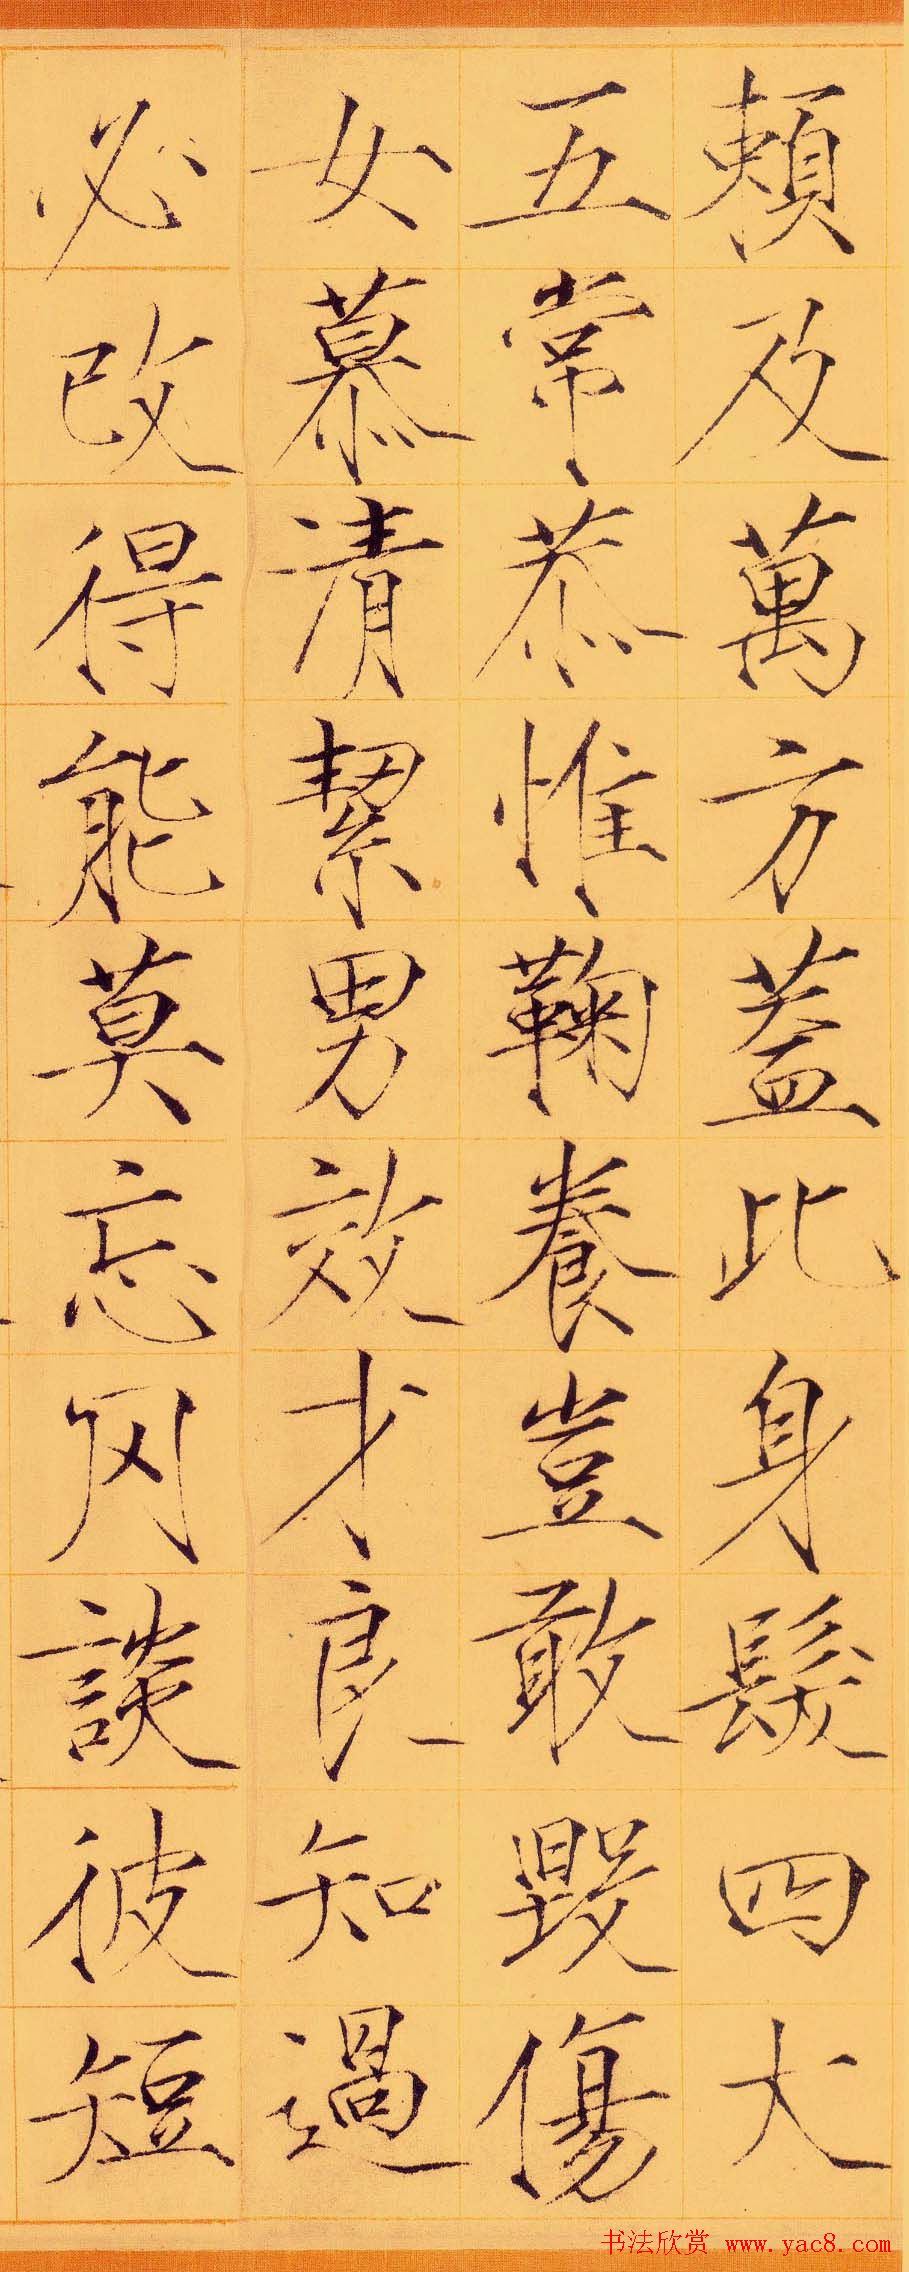 賴及萬方蓋此身髮四大
五常恭惟鞠養豈敢毀傷
女慕清絜男效才良知過
必改得能莫忘罔談彼短
书法欣赏 www.yac8.com